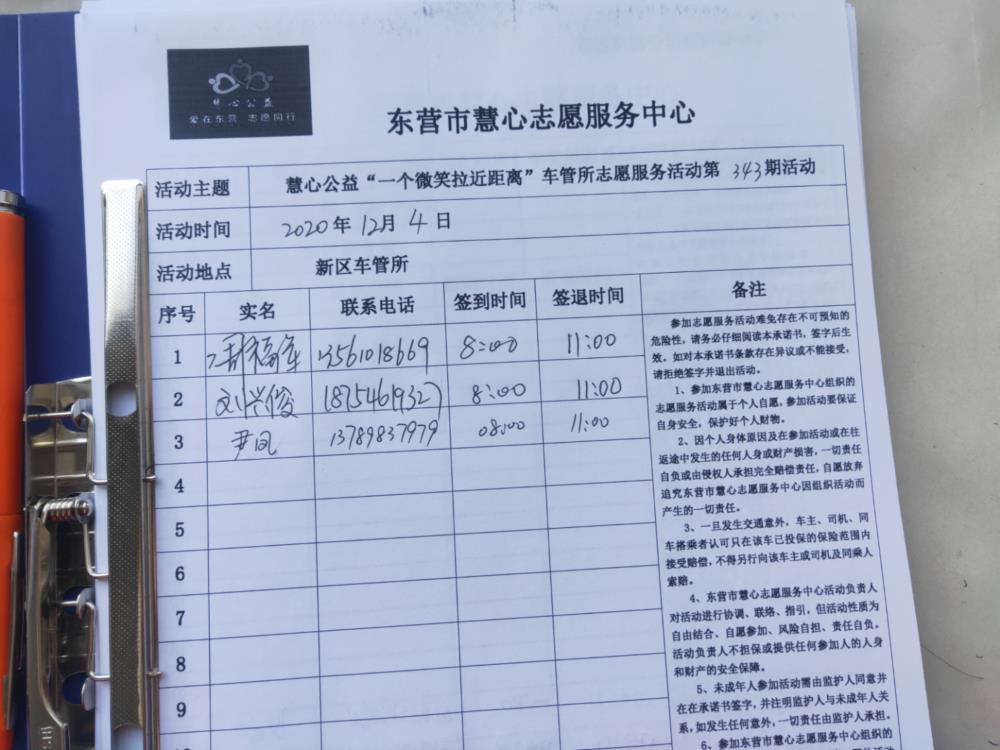 心公益
爱在东营 志愿同行
东营市慧心志愿服务中心
活动主题 慧心公益“一个微笑拉近距离”车管所志愿服务活动第 343期活动
活动时间 2020年 12月 4日
活动地点 新区车管所
序号 实名 联系电话 签到时间 签退时间 备注
1 福军 13561018669 8:00 11:00
2 刘兴俊 18754619327 8:00 11:00
3 尹凤 13789837979 08:00 11:00
4
5
6
7
8
9
参加志愿服务活动难免存在不可预知的
危险性，请务必仔细阅读本承诺书，签字后生
效。如对本承诺书条款存在异议或不能接受，
请拒绝签字并退出活动。
1、参加东营市慧心志愿服务中心组织的
志愿服务活动属于个人自愿，参加活动要保证
自身安全，保护好个人财物。
2、因个人身体原因及在参加活动或在往
返途中发生的任何人身或财产损害，一切责任
自负或由侵权人承担完全赔偿责任，自愿放弃
追究东营市慧心志愿服务中心因组织活动而
产生的一切责任。
3、一旦发生交通意外，车主、司机、同
车搭乘者认可只在该车已投保的保险范围内
接受赔偿，不得另行向该车主或司机及同乘人
索赔。
4、东营市慧心志愿服务中心活动负责人
对活动进行协调、联络、指引，但活动性质为
自由结合、自愿参加、风险自担、责任自负。
活动负责人不担保或提供任何参加人的人身
和财产的安全保障。
5、未成年人参加活动需由监护人同意并
在在承诺书签字，并注明监护人与未成年人关
系，如发生任何意外，一切责任由监护人承担。
6、参加东营市慧心志愿服务中心组织的